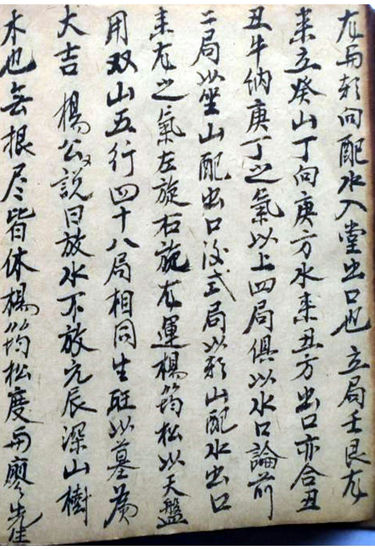 龙与朝向配水入堂出口也 立局壬艮龙
来立癸山丁向庚方水来丑方出口亦合丑
丑牛纳庚丁之氣以上四局俱以水口論前
二局以坐山配出口后式局以朝山配水出口
来龙之氣左旋右旋龙運楊筠松以天盤
用双山五行四十八局相同生旺以墓為
大吉 楊公說曰放水不放元辰深山樹
木也無根尽皆休楊筠松度与廖